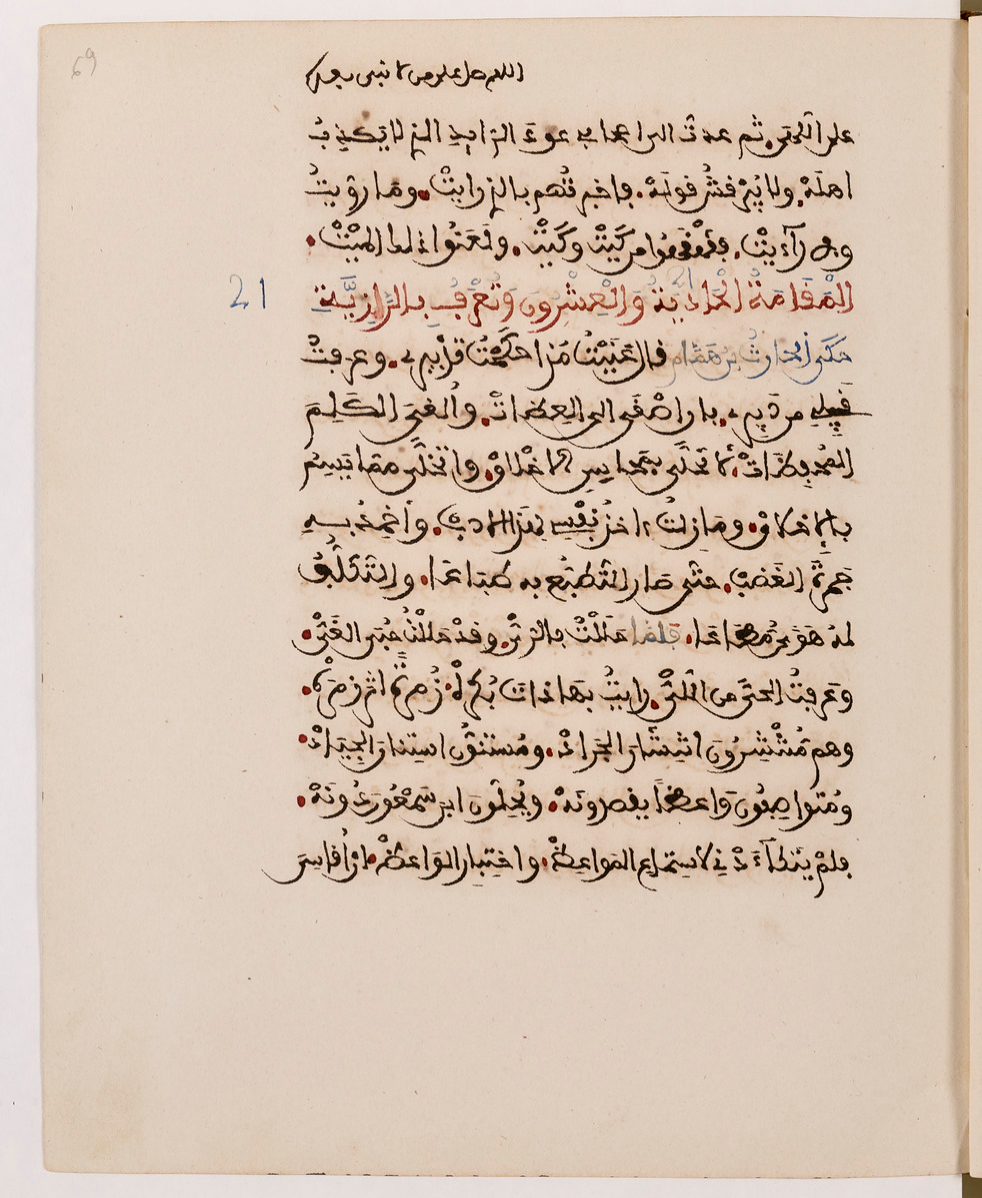 69
اللهم صل على من لا نبي بعده
على الحي. ثم عدت الى اصحابي عود الرايد الذي لا يكذب
اهله. ولا يبرقش قوله. فاخبرتهم بالذي رايت. وما روّيت
ولا رآءيت. فقهقهوا من كيت وكيت. ولعنوا ذلك الميت.
المَقَامَةُ الحَادِيَةُ وَالعِشْرُونَ وَتُعْرَفُ بِالرَّازِيَّةِ
21
21
حكى الحارث بن همام قال عُنِيتُ مذ احكمت تدبيري. وعرفت
قبيلي من دبيري. بان اصغى الى العظات. وألغي الكلم
المحفظات. لا تحلى بمحاسن الاخلاق. واتخلى مما يسم
بالاخلاق. وما زلت ءاخذ نفسي بهذا الادب. وأخمد به
جمرة الغضب. حتى صار التطبع به طباعا. والتكلف
له هوى مطاعا. فلما حللت بالري. وقد حللت حبى الغي.
وعرفت الحي من اللي. رايت بها ذات بُكرة. زمرة اثر زمرة.
وهم منتشرون انتشار الجراد. ومستنون استنان الجياد.
ومتواصفون واعظا يقصدونه. ويحلون ابن سمعون دونه.
فلم يتكآءدني لاستماع المواعظ. واختبار الواعظ. ان أقاسي